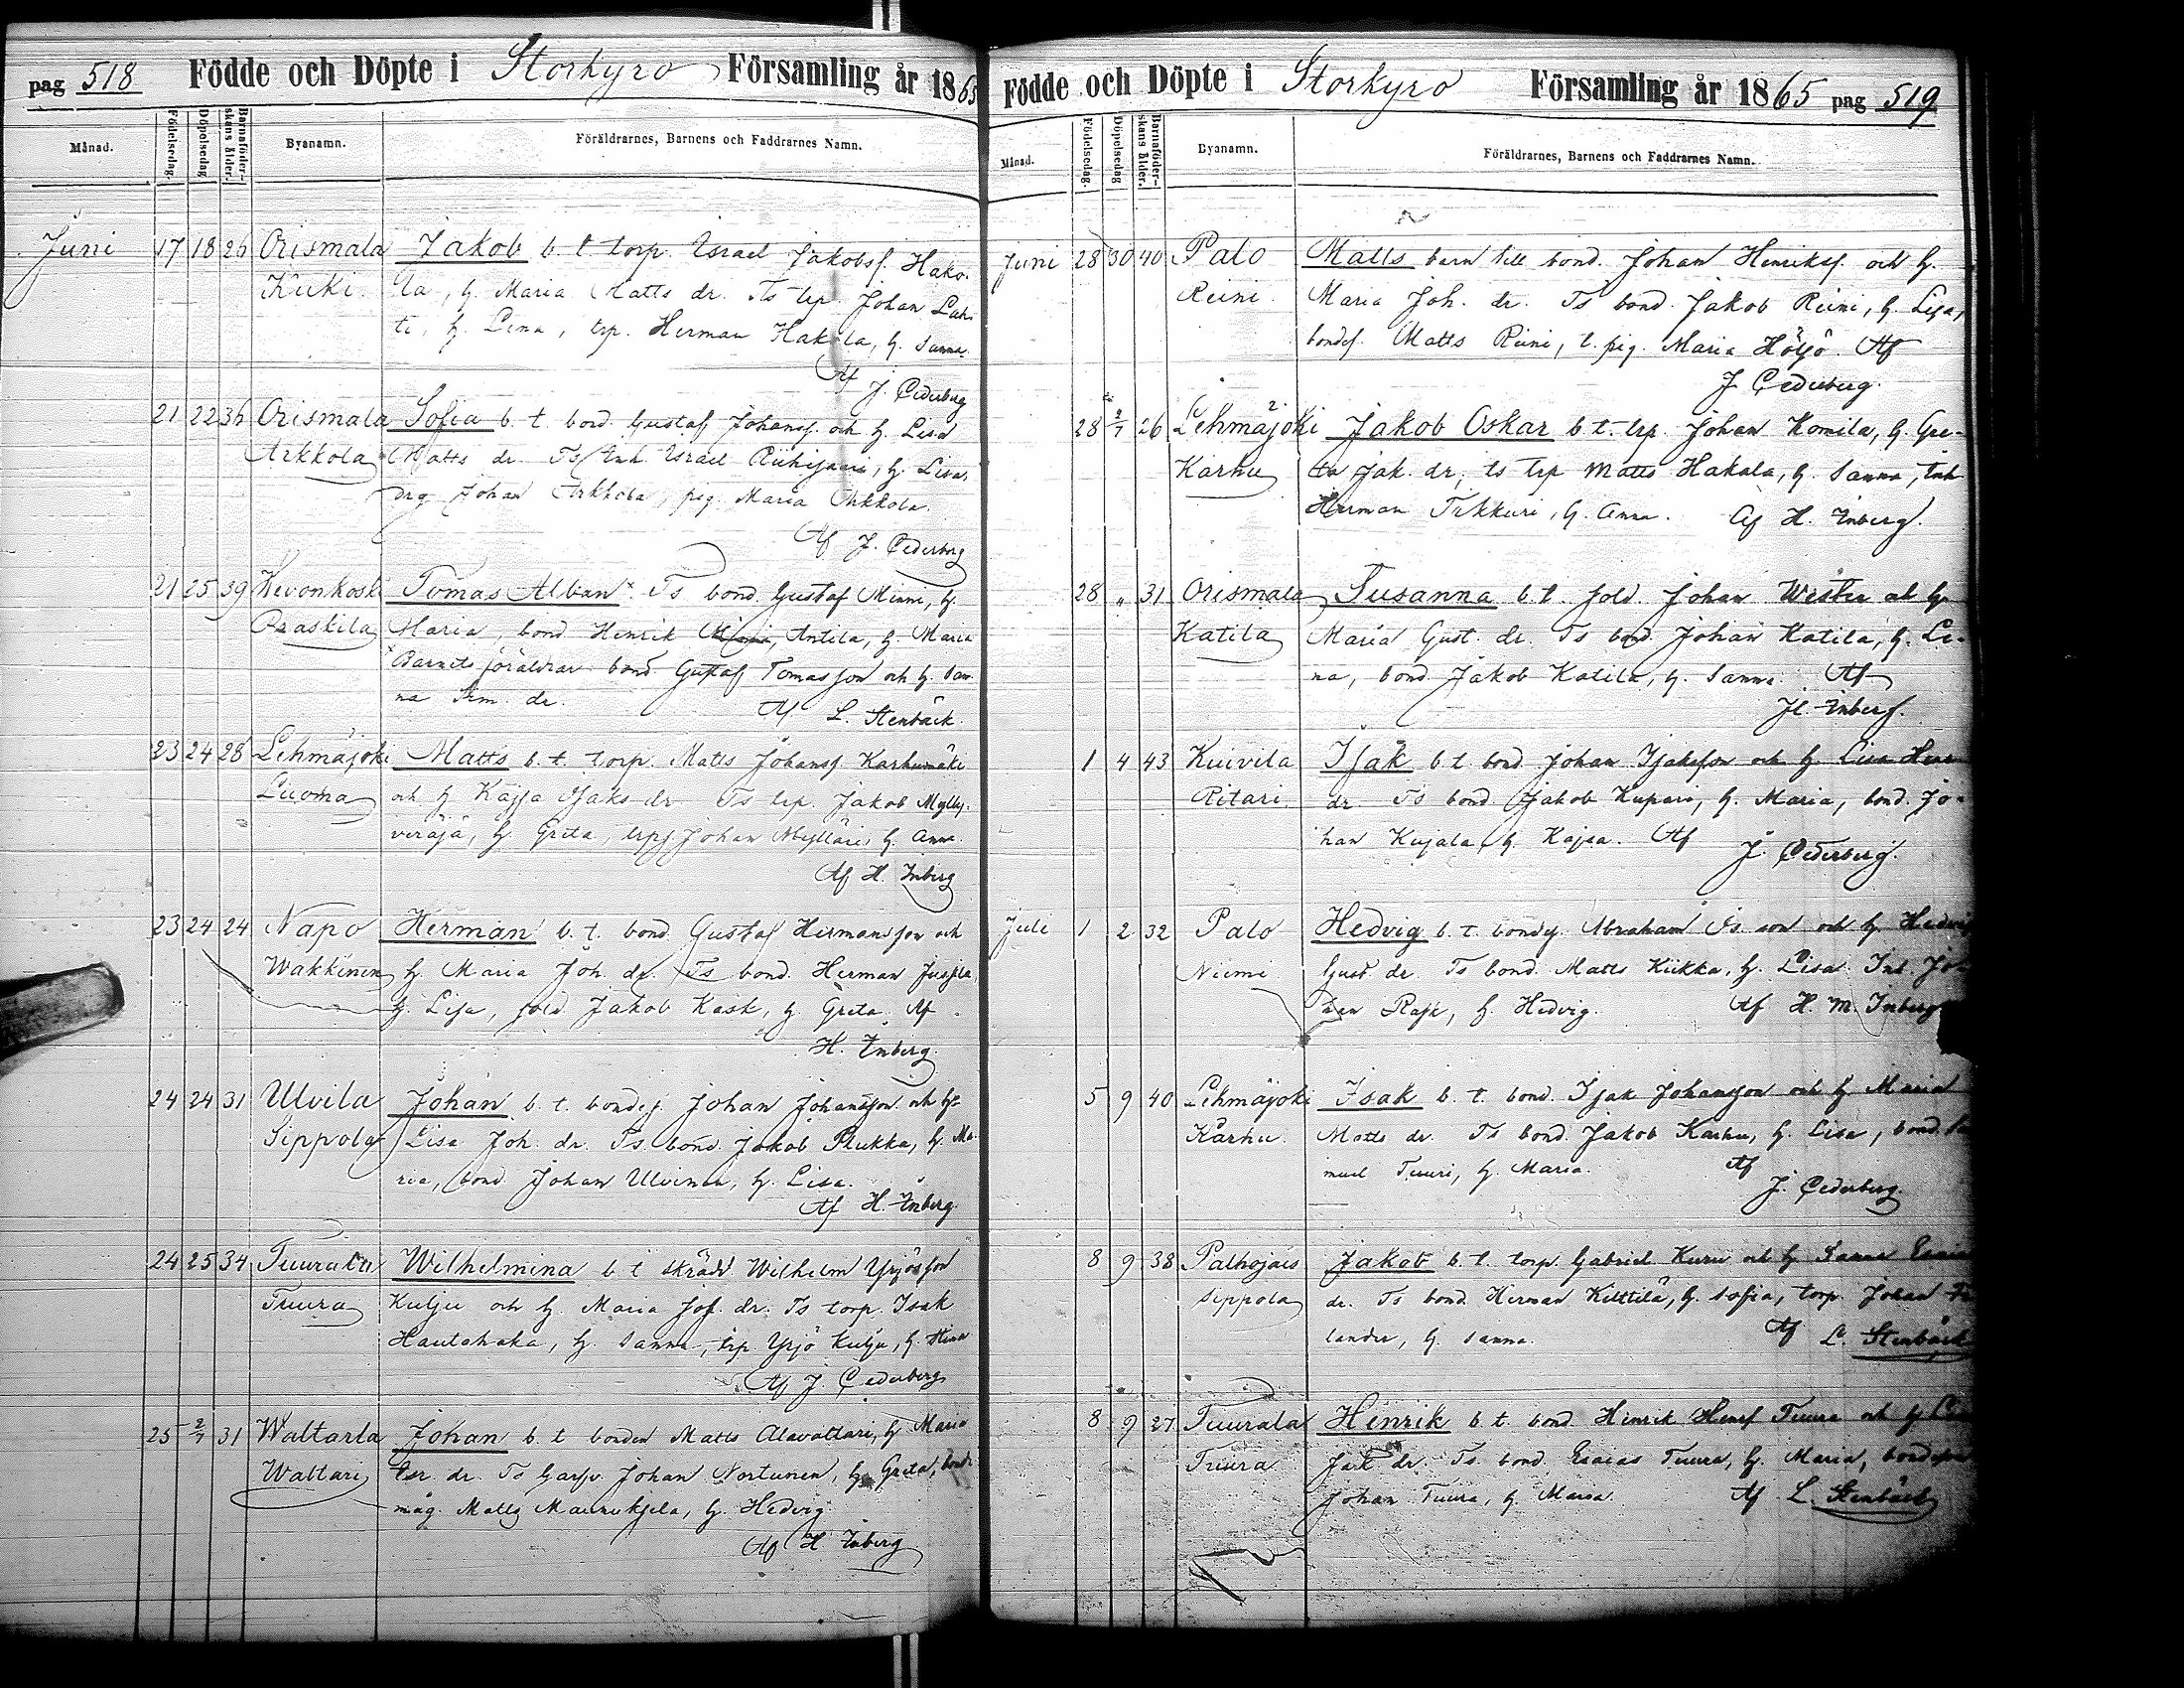 pag 518 Födde och Döpte i Storkyro Församling år 1865
Månad. Födelsedag. Döpelsedag Barnaföderskans ålder. Byanamn. Föräldrarnes, Barnens och Faddrarnes Namn.
Juni 17 18 26 Orismala Jakob b. t torp. Israel Jakobss. Hako-
Kuki. la, h. Maria Matts dr. Ts trp. Johan Lah-
ti, h. Lena, trp. Herman Hakola, h. Sanna.
Af J. Cederberg
21 22 36 Orismala Sofia b. t. bond. Gustaf Johanss. och h. Lisa
Arkkola Matts dr. Ts Inh. Israel h. Lisa,
drg Johan Arkkola, pig. Maria Arkkola.
Af J. Cederberg
21 25 39 Kevonkoski Tomas Alban x Ts bond. Gustaf Minni, h.
Praskila Maria, bond. Henrik Antila, h. Maria
x Barnets föräldrar bond. Gustaf Tomasson och h. San-
na dr. Af L. Stenbäck.
23 24 28 Lehmäjoki Matts b. t. torp. Matts Johanss. Karhumäki
Luoma och h. Kajsa Isaks dr. Ts trp. Jakob Mylly-
h. Greta, trps Johan Mylläri, h. Anna.
Af H. Inberg
23 24 24 Napo Herman b. t. bond. Gustaf Hermansson och
Wakkinen h. Maria Joh. dr. Ts bond. Herman
h. Lisa, sold. Jakob Kask, h. Greta. Af
H. Inberg.
24 24 31 Ulvila Johan b. t. bondes. Johan Johansson och h.
Sippola Lisa Joh. dr. Ts bond. Jakob Pukka, h. Ma-
ria, bond. Johan Ulvinen, h. Lisa.
Af H. Inberg.
24 25 34 Tuurala Wilhelmina b t skrädd. Wilhelm Yrjösson
Tuura Kulju och h. Maria Jos. dr. Ts torp. Isak
Hautahaka, h. Sanna, trp. Yrjö Kulju, h. Hina
Af J. Cederberg
25 2/7 31 Waltarla Johan b. t bonden Matts Alavaltari, h Maria
Waltari Isr. dr. Ts Garfv. Johan Nortunen, h. Greta, bonde
måg. Matts h. Hedvig.
Af H Inberg
Födde och Döpte i Storkyro Församling år 1865 pag 519
Månad. Födelsedag. Döpelsedag Barnaföderskans ålder. Byanamn. Föräldrarnes, Barnens och Faddrarnes Namn.
Juni 28 30 40 Palo Matts barn till bond. Johan Henrikss. och h.
Reini. Maria Joh. dr. Ts bond. Jakob Reini, h. Lisa,
bondes. Matts Reini, t. pig. Maria Höljö. Af
J Cederberg.
28 2/7 26 Lehmäjoki Jakob Oskar b t. trp. Johan Komila, h. Gre-
Karhu ta Jak. dr, ts trp Matts Hakala, h. Sanna, Inh
Herman h. Anna. Af H. Inberg.
28 „ 31 Orismala Susanna b. t. sold. Johan Wester och h.
Katila Maria Gust. dr. Ts bond. Johan Katila, h. Le-
na, bond. Jakob Katila, h. Sanna. Af
H. Inberg.
1 4 43 Kuivila Isak b. t. bond. Johan Isaksson och h. Lisa Henr.
Ritari. dr. Ts bond Jakob Kupari, h. Maria, bond. Jo-
han Kujala, h. Kajsa. Af J. Cederberg.
Juli 1 2 32 Palo Hedvig b. t. bondes. Abraham Is. son och h. Hedvig
Niemi Gust. dr. Ts bond. Matts Kiikka, h. Lisa. Inh. Jo-
han h. Hedvig. Af H. M. Inberg
5 9 40 Lehmäjoki Isak b. t. bond. Isak Johansson och h. Maria
Karhu. Matts dr. Ts bond. Jakob Karhu, h. Lisa, bond. Sa-
muel Tuuri, h. Maria. Af
J. Cederberg.
8 9 38 Palhojais Jakob b. t. torp. Gabriel Kuru och h. Sanna Esaias
Sippola dr. Ts bond. Herman Kilttilä, h. Sofia, torp. Johan
lander, h. Sanna. Af L. Stenbäck
8 9 27 Tuurala Henrik b. t. bond. Henrik Henrs Tuura och h
Tuura Jak. dr. Ts. bond. Esaias Tuura, h. Maria,
Johan Tuura, h. Maria. Af L. Stenbäck